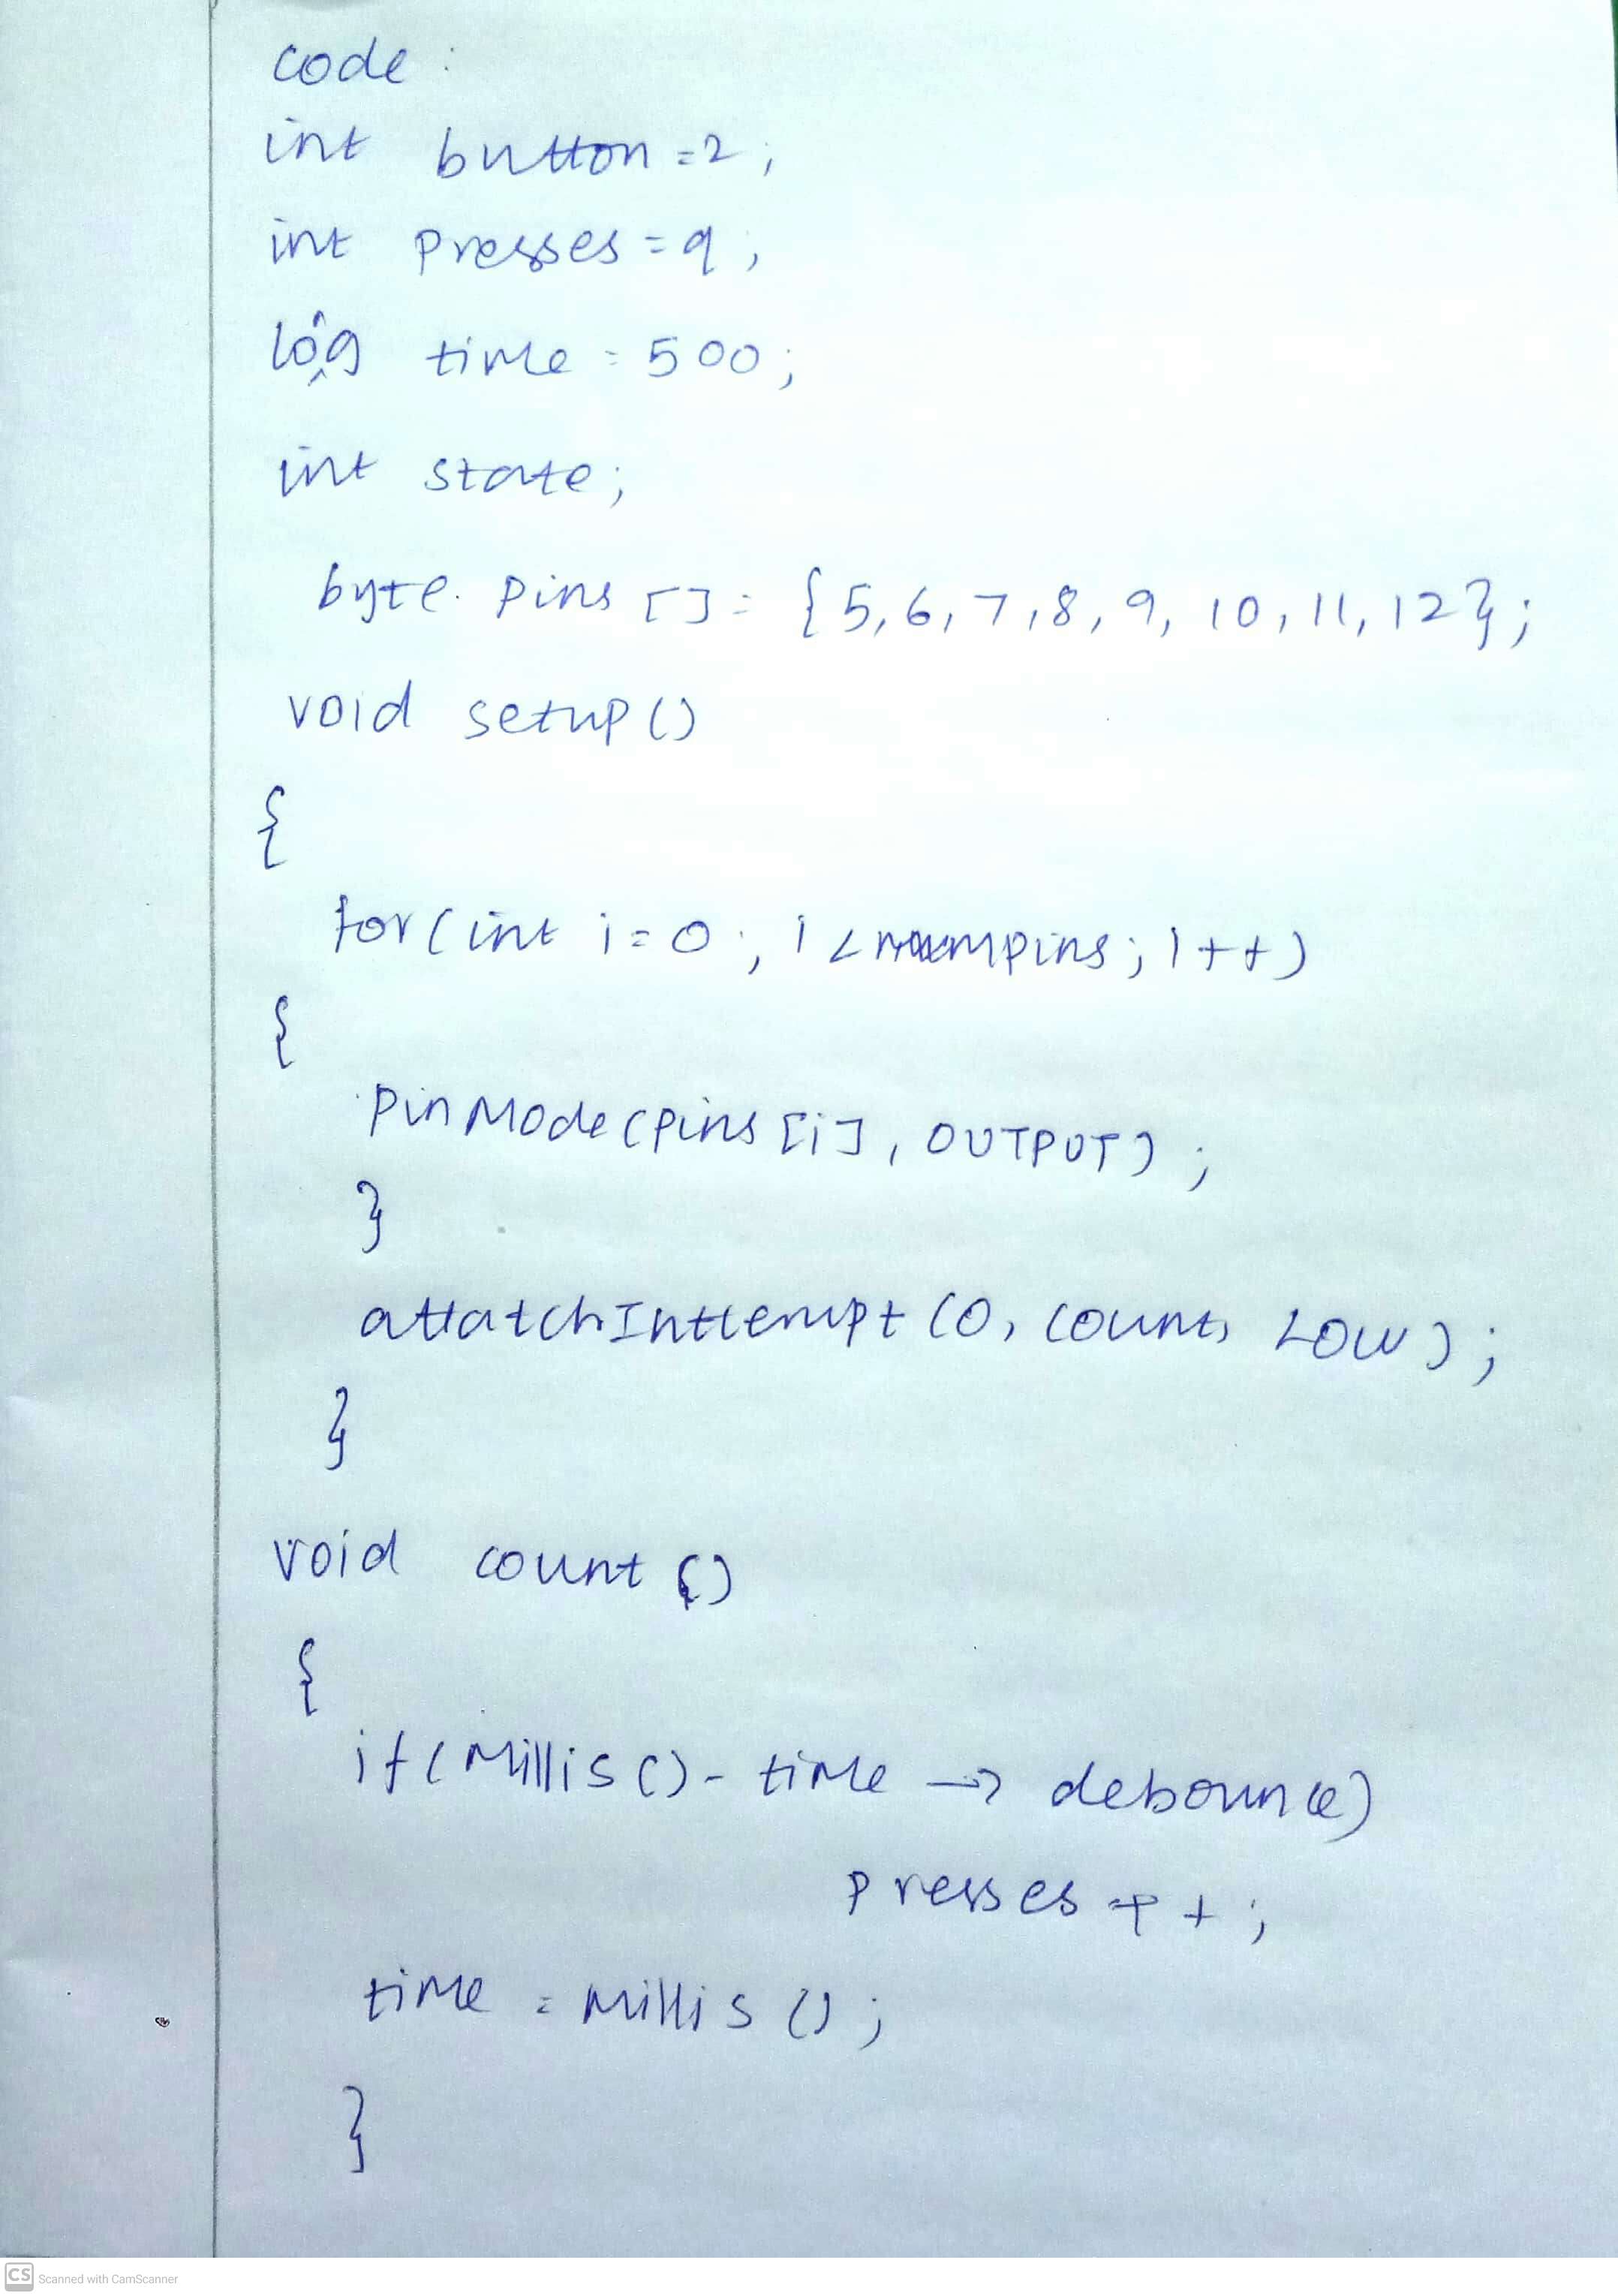 code :
int button = 2 ;
int presses = 9 ;
log time = 500 ;
int state ;
byte pins [] = { 5, 6, 7, 8, 9, 10, 11, 12 } ;
void setup ()
{
for ( int i = 0 ; i < numpins ; i + + )
{
pinMode (pins [i] , OUTPUT) ;
}
attatchInttempt (0, count, LOW) ;
}
void count ()
{
if ( Millis () - time → debounce)
presses + + ;
time = Millis () ;
}
CS Scanned with CamScanner